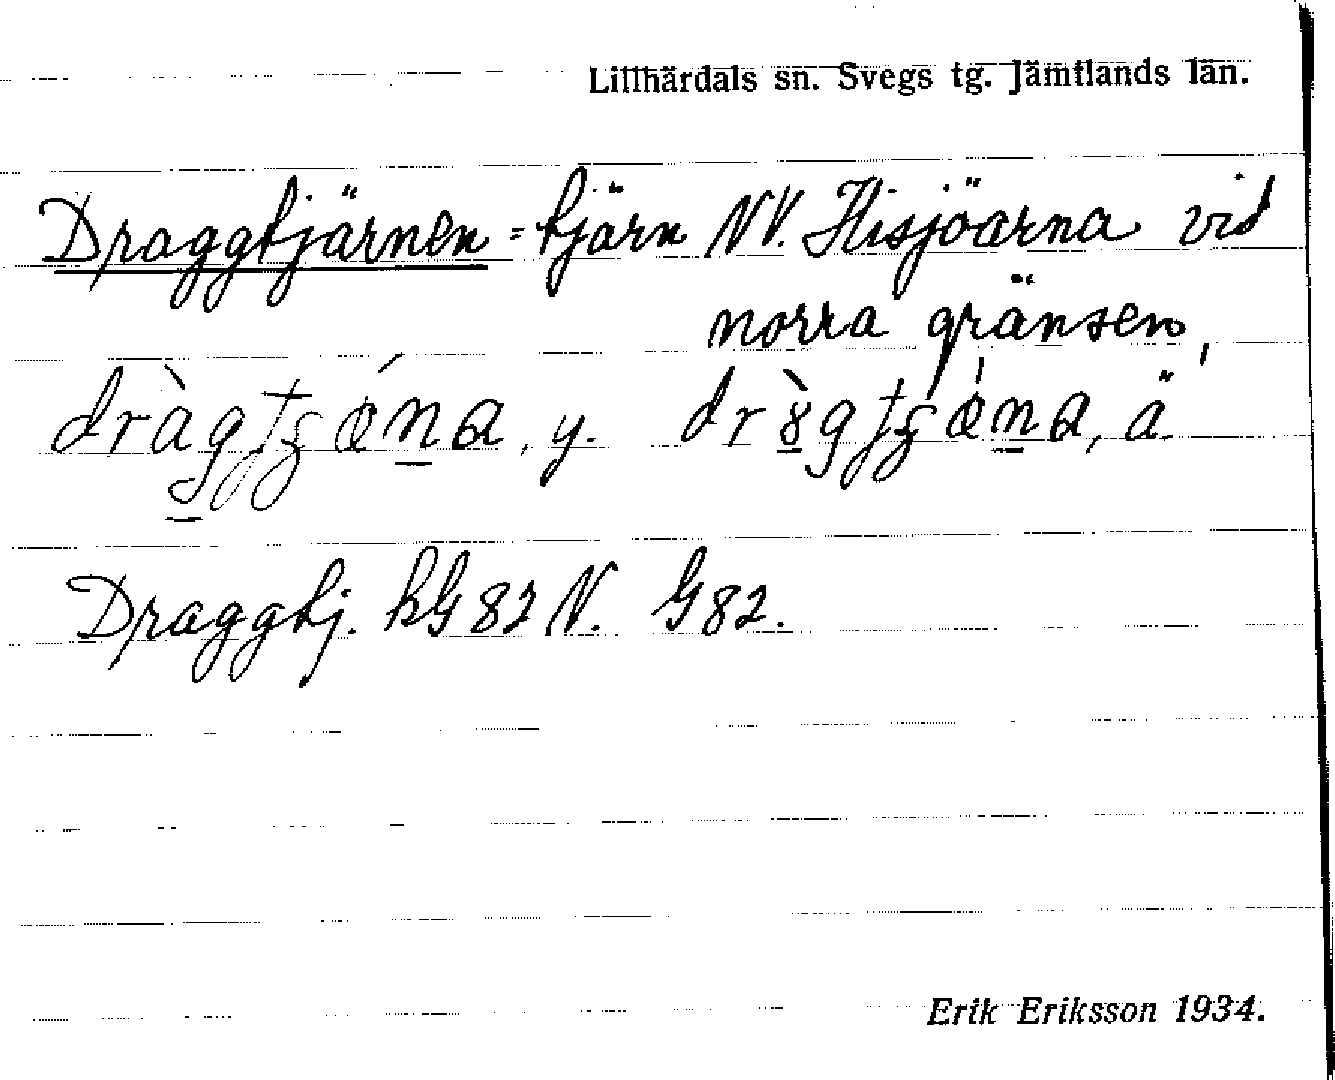 Lillhärdals sn. Svegs tg. Jämtlands län.
Draggtjärnen = tjärn NV. Hisjöarna vid
norra gränsen,
y. ä.
Draggtj. kG 82 N. G 82.
Erik Eriksson 1934.